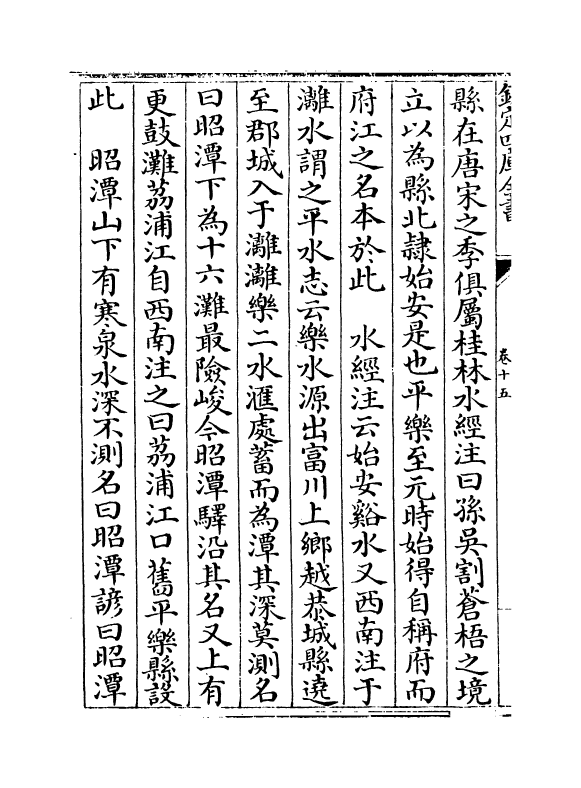 欽定四庫全書
卷十五
縣在唐宋之季俱屬桂林水經注曰孫吳割蒼梧之境
立以為縣北隸始安是也平樂至元時始得自稱府而
府江之名本於此　水經注云始安谿水又西南注于
灕水謂之平水志云樂水源出富川上鄉越恭城縣遶
至郡城入于灕灕樂二水滙處蓄而為潭其深莫測名
曰昭潭下為十六灘最險峻今昭潭驛沿其名又上有
更鼓灘荔浦江自西南注之曰荔浦江口　舊平樂縣設
此　昭潭山下有寒泉水深不測名曰昭潭諺曰昭潭